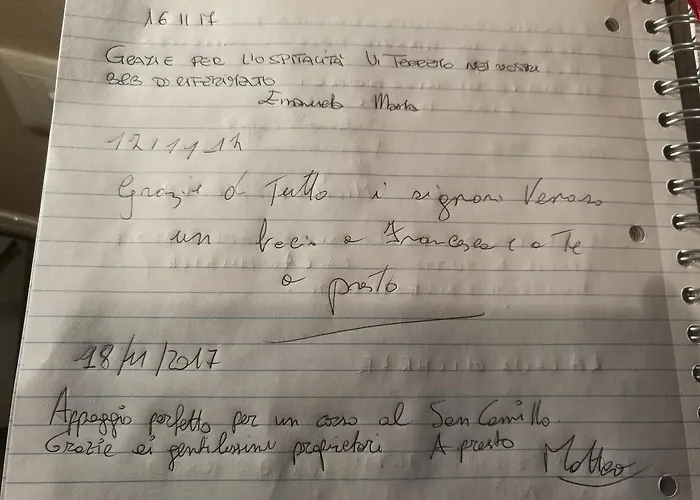 16 11 17
GRAZIE PER L'OSPITALITÀ VI TERREMO NEI NOSTRI
B&B DI RIFERIMENTO
Emanuela Marta
17/11_17
Grazie di Tutto i signori
un bacio a Francesca e a Te
a presto
18/11/2017
Appoggio perfetto per un corso al San Camillo.
Grazie ai gentilissimi proprietari A presto
Matteo